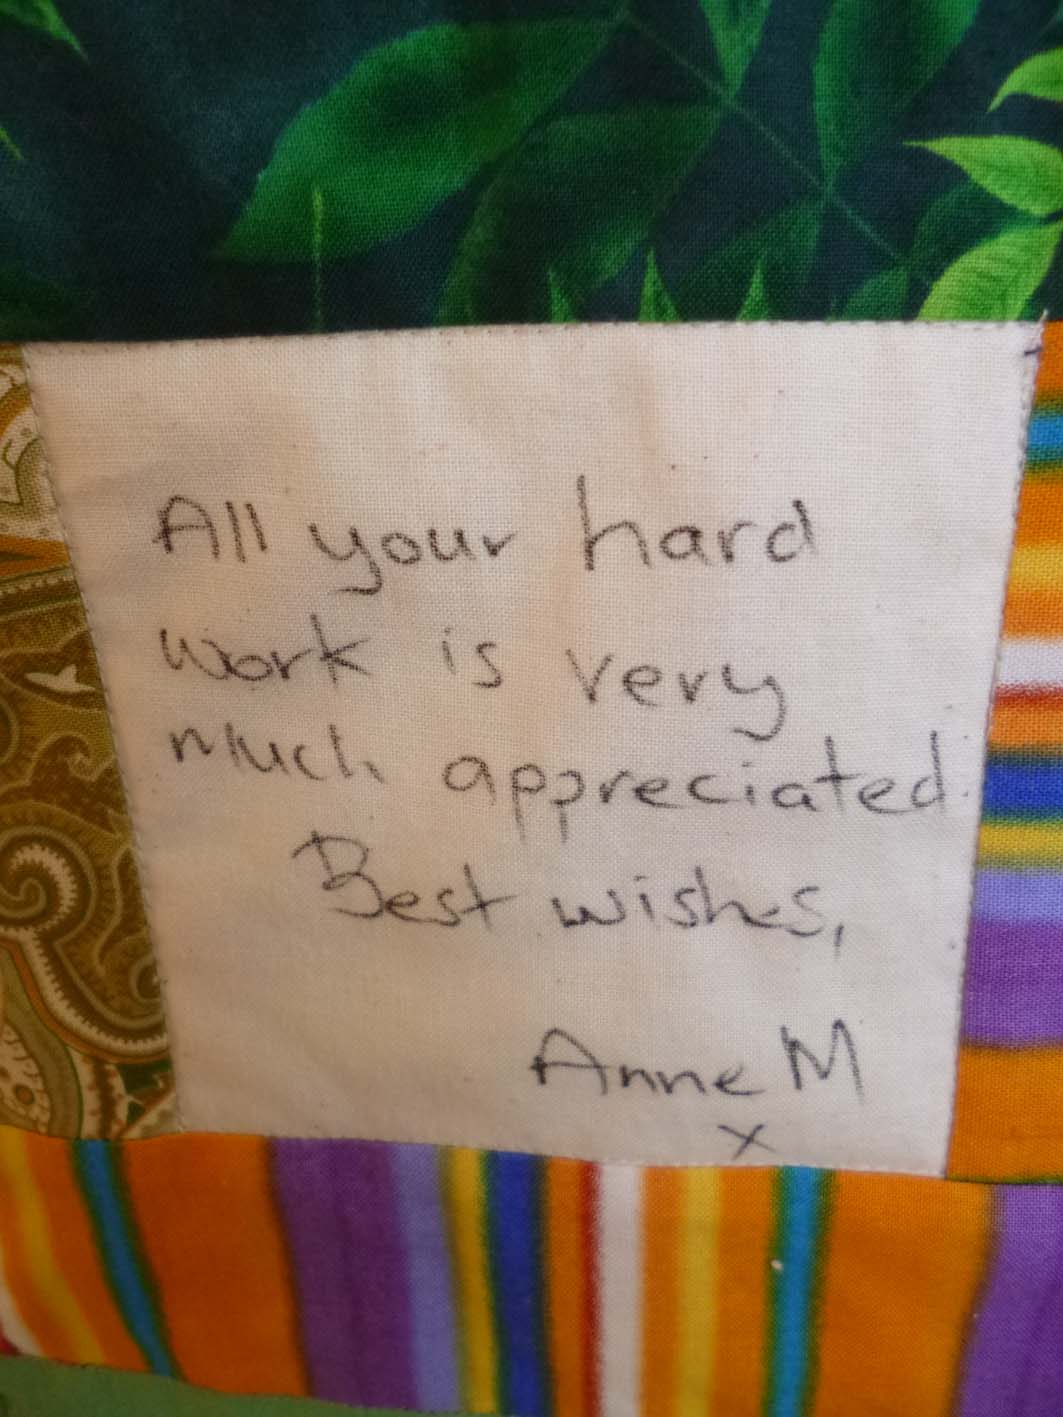 All your hard
work is very
much appreciated.
Best wishes,
Anne M
x